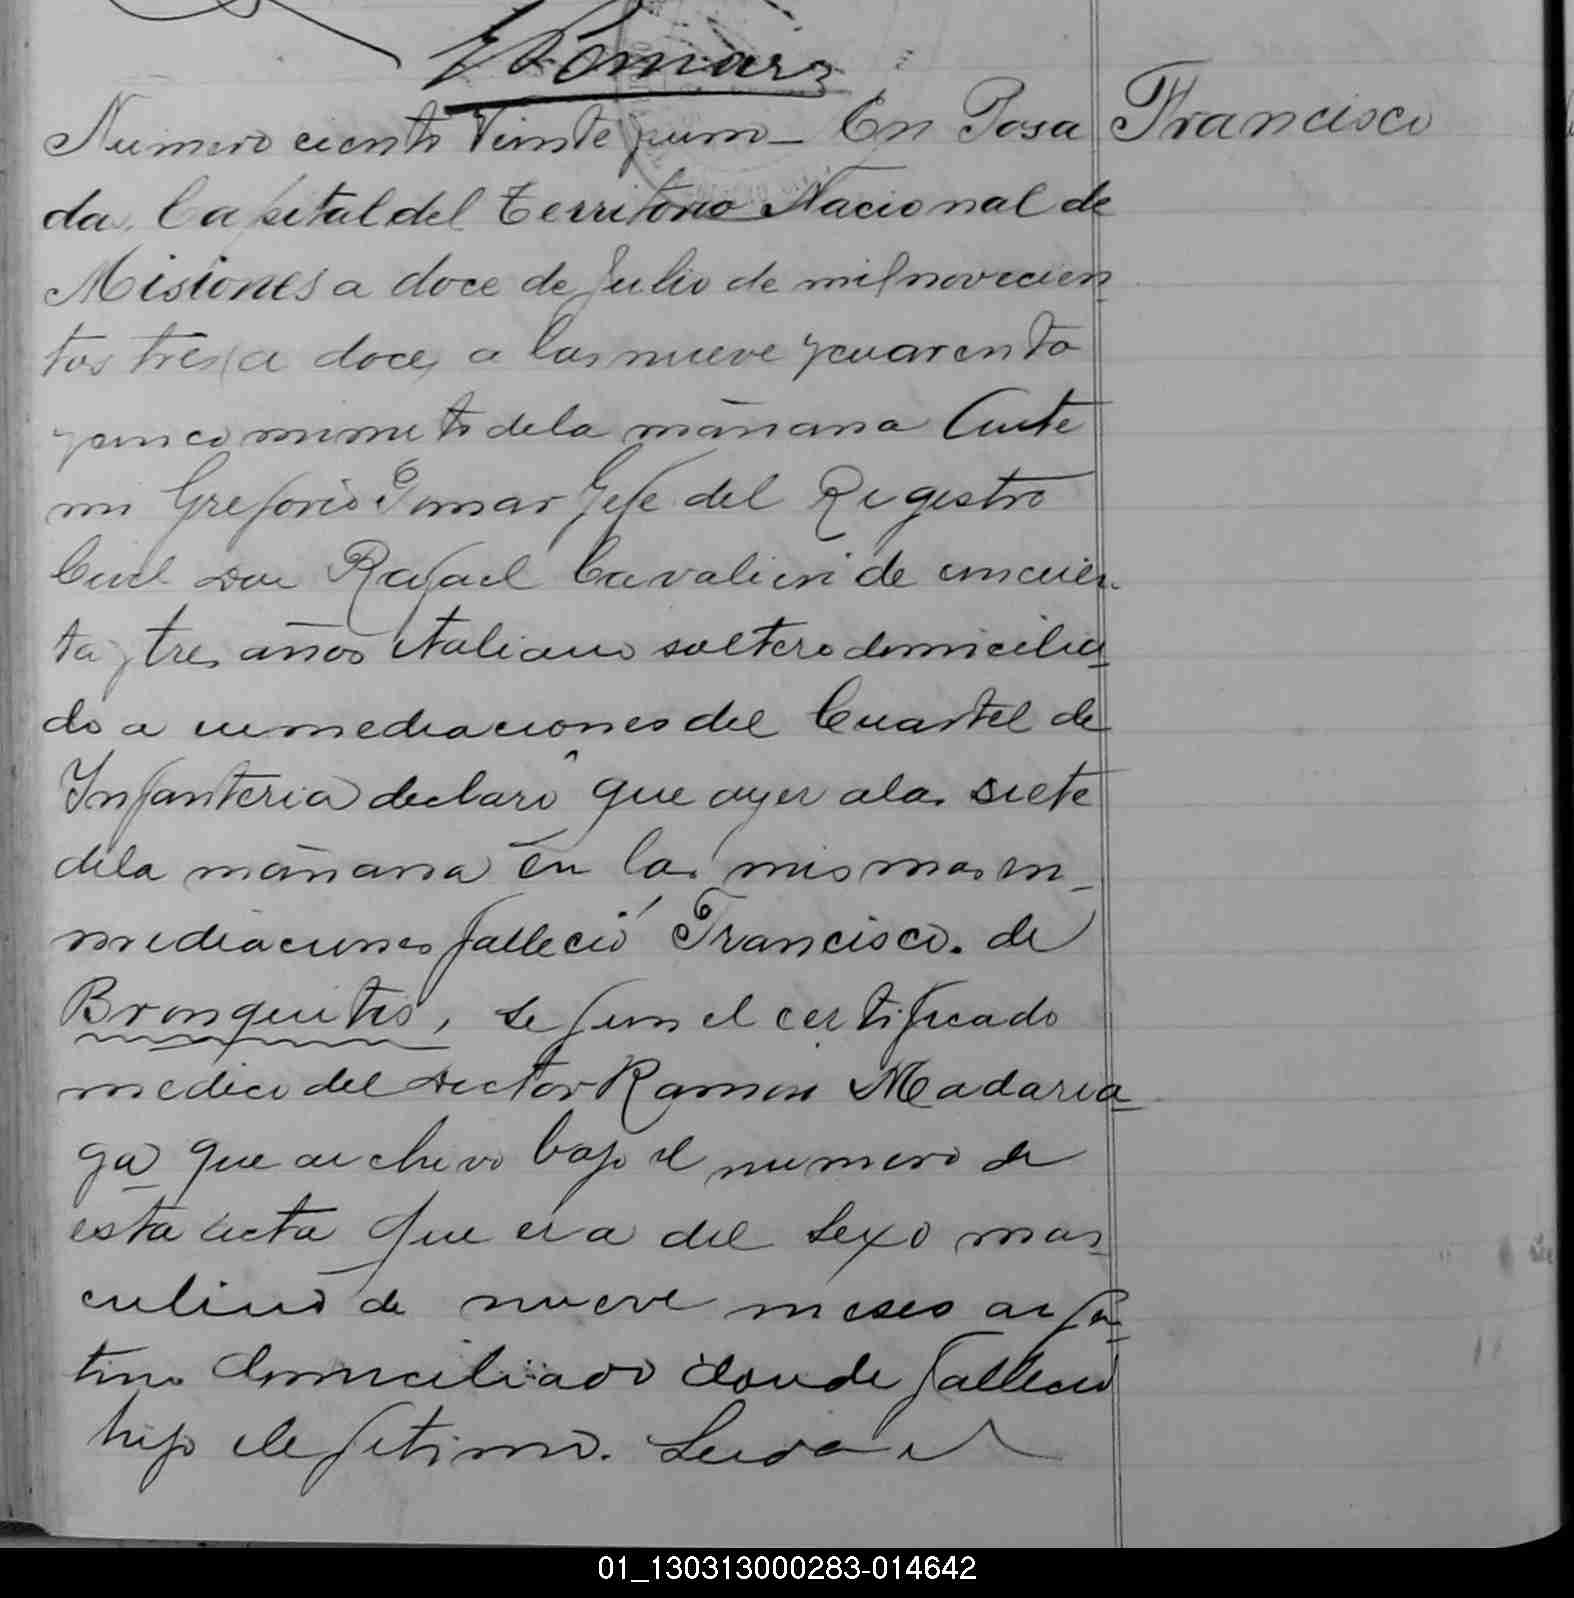 Pomar
Numero ciento Veinte y uno_ En Posa
Francisco
da, Capital del Territorio Nacional de
Misiones a doce de Julio de mil novecien
tos tres, a doce, a las nueve y cuarenta
y cinco minuto de la mañana Ante
mi Gregorio Pomar Gefe del Registro
Civil Don Rafael Cavalieri de cincuen
ta y tres años italiano soltero domicilia
do a inmediaciones del Cuartel de
Infanteria declaró que ayer a las siete
de la mañana en las mismas in_
mediaciones falleció Francisco. de
Bronquitis, segun el certificado
medico del Doctor Ramon Madaria
ga que archivo bajo el numero de
esta acta que era del sexo mas
culino de nueve meses argen
tino domiciliado donde falleció
hijo ilegitimo. Leida el
01_130313000283-014642